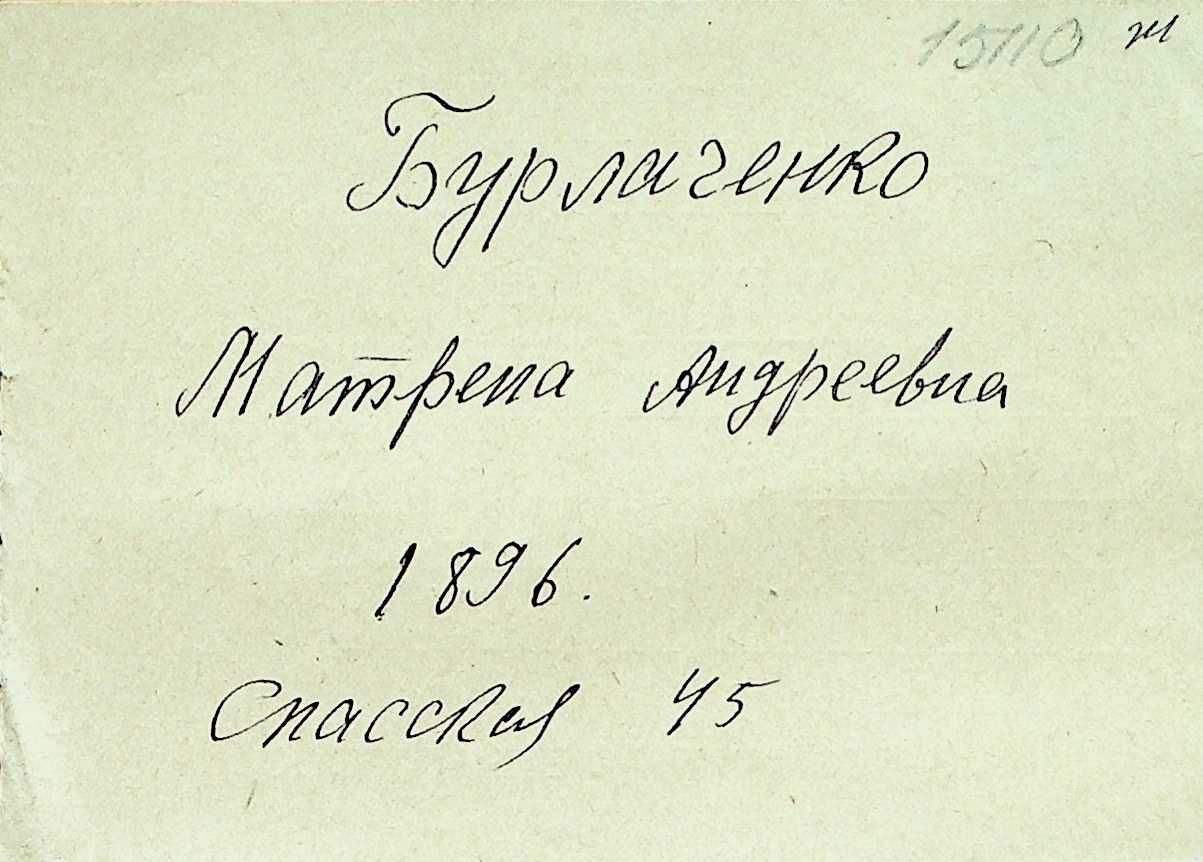 15110 ж
Бурлаченко
Матрена Андреевна
1896.
Спасская 45